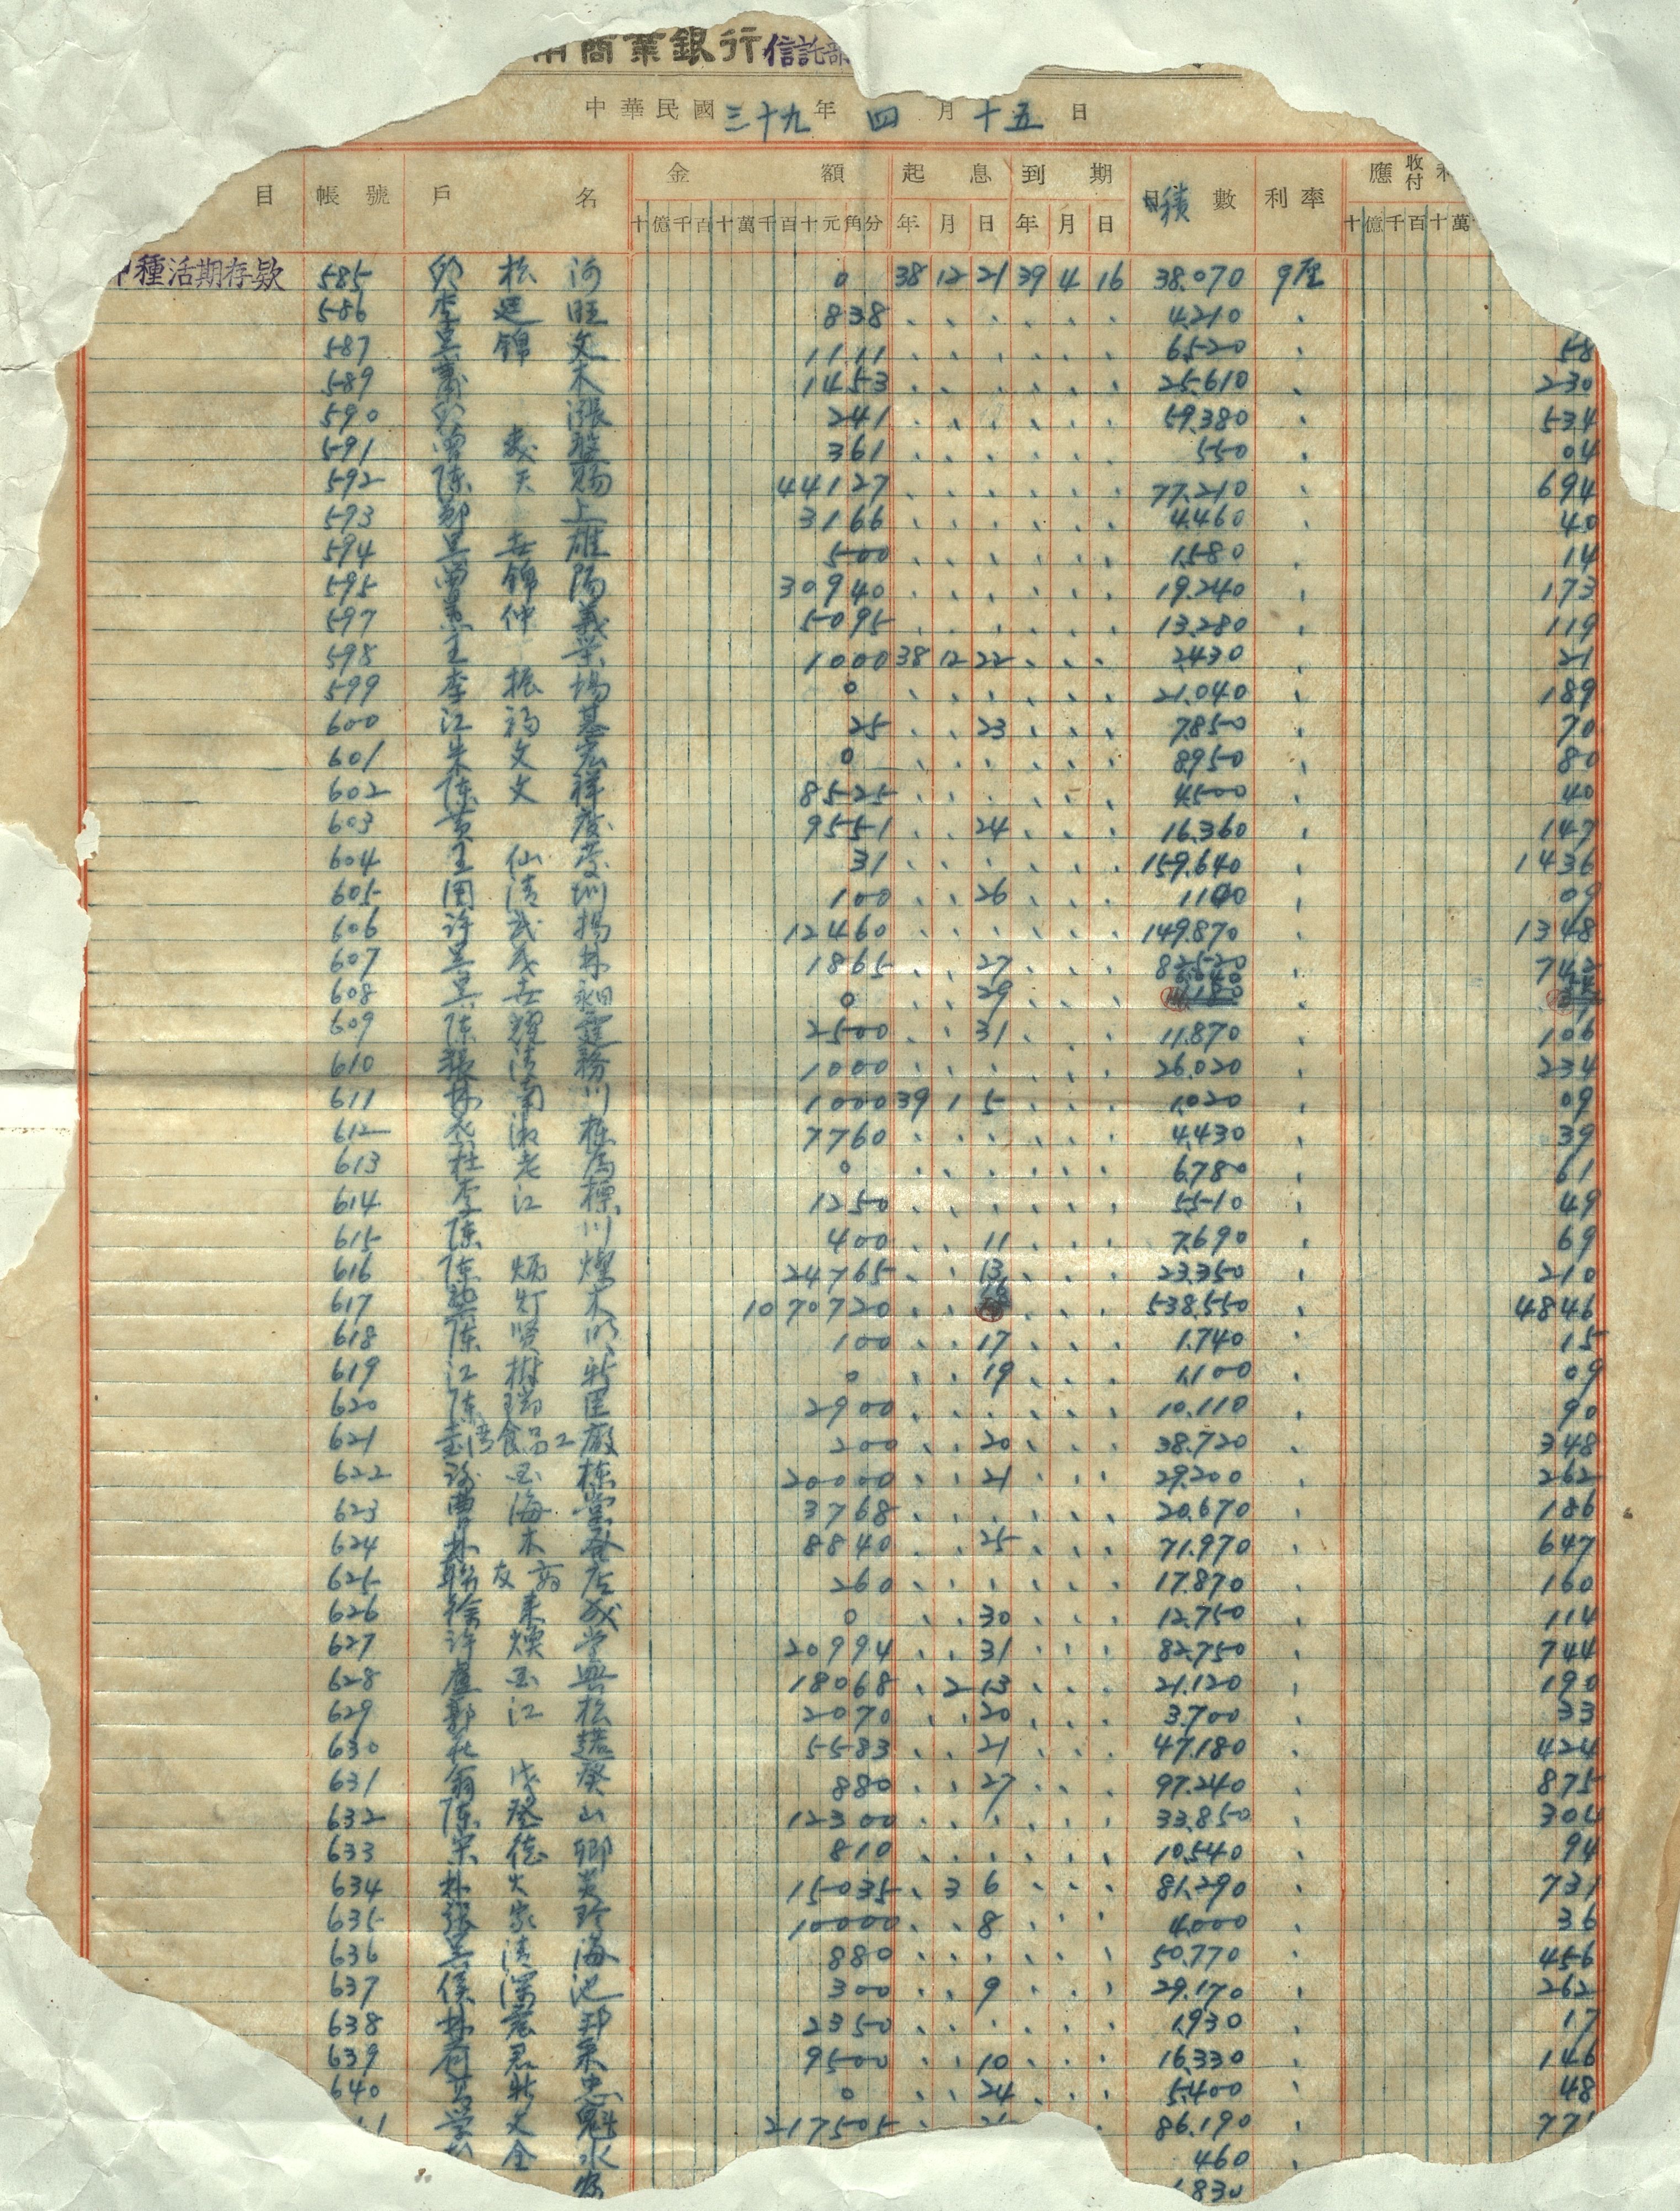 商業銀行信託部
中華民國三十九年四月十五日
目 帳號 戶名 金額 起息 到期 日積數 利率 應收付利
十億千百十萬千百十元角分 年月日 年月日 十億千百十萬
種活期存欵 585 松河 0 38 12 21 39 4 16 38.070 9厘
586 李廷旺 838 、 、 、 、 、 、 4.210 、
587 吳錦文 1111 、 、 、 、 、 、 6.520 、 58
589 木 1453 、 、 、 、 、 、 25.610 、 230
590 漲 241 、 、 、 、 、 、 59.380 、 534
591 曾 361 、 、 、 、 、 、 550 、 04
592 陳天賜 44127 、 、 、 、 、 、 77.210 、 694
593 鄭上 3166 、 、 、 、 、 、 4.460 、 40
594 吳雄 500 、 、 、 、 、 、 1.580 14
595 錦陽 30940 、 、 、 、 、 、 19.240 、 173
597 仲義 5095 、 、 、 、 、 、 13.280 、 119
598 王榮 1000 38 12 22 、 、 、 2.430 、 21
599 李振場 0 、 、 、 、 、 、 21.040 、 189
600 江福基 25 、 、 23 、 、 、 7.850 、 70
601 朱文宏 0 、 、 、 、 、 、 8.950 、 80
602 陳文祥 8525 、 、 、 、 、 、 4.500 、 40
603 黃慶 9551 、 、 24 、 、 、 16.360 、 147
604 王仙 31 、 、 、 、 、 、 159.640 、 1436
605 周清圳 100 、 、 26 、 、 、 1100 、 09
606 許武揚 12460 、 、 、 、 、 、 149.870 、 1348
607 吳茂林 1865 、 、 27 、 、 、 82.520 、 742
608 吳 0 、 、 29 、 、 、 、
609 陳耀霆 2500 、 、 31 、 、 、 11.870 、 106
610 張清務 1000 、 、 、 、 、 、 26.020 、 234
611 林南川 1000 39 1 5 、 、 、 1.020 、 09
612 淑棟 7760 、 、 、 、 、 、 4.430 、 39
613 杜老 0 、 、 、 、 、 、 6.780 、 61
614 李江標 1250 、 、 、 、 、 、 5.510 、 49
615 陳川 400 、 、 11 、 、 、 7.690 、 69
616 陳炳燦 24765 、 、 13 、 、 、 23.350 、 210
617 灯木 1070720 、 、 、 、 、 538.550 、 4846
618 陳賢 100 、 、 17 、 、 、 1.740 、 15
619 江樹新 0 、 、 19 、 、 、 1.100 、 09
620 陳瑞匡 2900 、 、 、 、 、 、 10.110 、 90
621 台湾食品工廠 200 、 、 20 、 、 、 38.720 、 348
622 棟 20000 、 、 21 、 、 、 29.200 、 262
623 曹海 3768 、 、 、 、 、 、 20.670 、 186
624 林木 8840 、 、 25 、 、 、 71.970 、 647
625 友 260 、 、 、 、 、 、 17.870 、 160
626 徐來成 0 、 、 30 、 、 、 12.750 、 114
627 許煥堂 20994 、 、 31 、 、 、 82.750 、 744
628 盧興 18068 、 2 13 、 、 、 21.120 、 190
629 郭江松 2070 、 、 20 、 、 、 3.700 、 33
630 5583 、 、 21 、 、 、 47.180 、 424
631 翁癸 880 、 、 27 、 、 、 97.240 、 875
632 陳登山 12300 、 、 、 、 、 、 33.850 、 304
633 宋德卿 810 、 、 、 、 、 、 10.540 、 94
634 林火炎 15035 、 3 6 、 、 、 81.290 、 731
635 張家珍 10000 、 、 8 、 、 、 4.000 、 36
636 吳清海 880 、 、 、 、 、 、 50.770 、 456
637 侯深池 300 、 、 9 、 、 、 29.170 、 262
638 林邦 2350 、 、 、 、 、 、 1.930 、 17
639 君 9500 、 、 10 、 、 、 16.330 、 146
640 忠 0 、 、 24 、 、 、 5.400 、 48
1 文魁 217505 、 、 、 、 86.190 、 77
全水 460 、
1.830